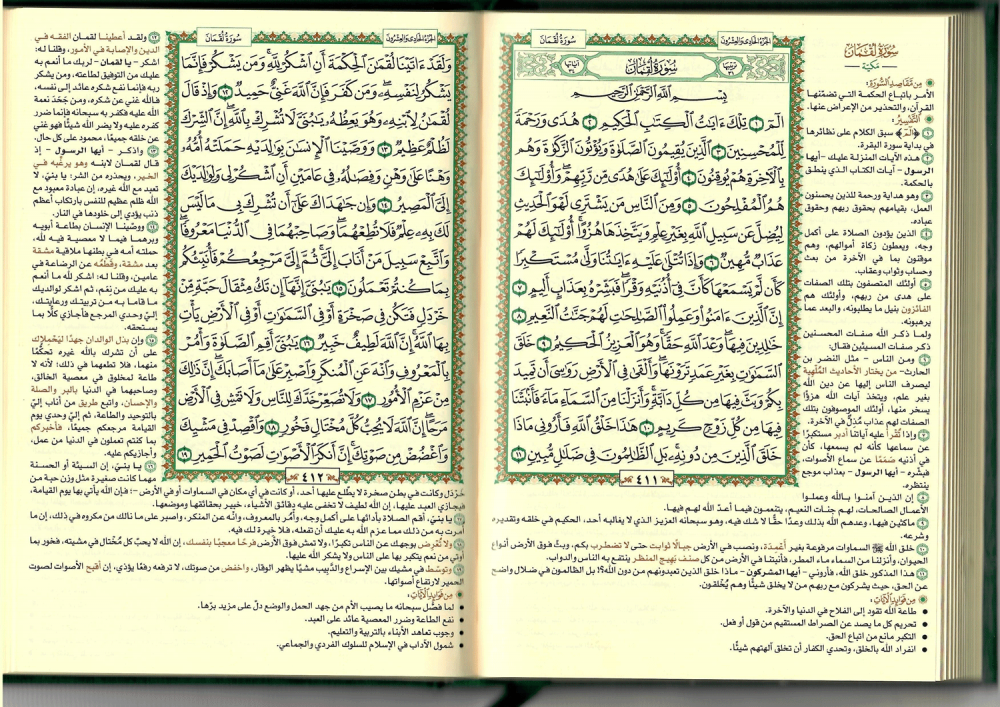 الجُزْءُ الحَادِي وَالعِشْرُونَ
سُورَةُ لُقْمَانَ
ترتيبها ٣١
سُورَةُ لُقْمَانَ
آياتها ٣٤
بِسْمِ ٱللَّهِ ٱلرَّحْمَٰنِ ٱلرَّحِيمِ
الٓمٓ ١ تِلْكَ ءَايَٰتُ ٱلْكِتَٰبِ ٱلْحَكِيمِ ٢ هُدًى وَرَحْمَةً
لِّلْمُحْسِنِينَ ٣ ٱلَّذِينَ يُقِيمُونَ ٱلصَّلَوٰةَ وَيُؤْتُونَ ٱلزَّكَوٰةَ وَهُم
بِٱلْأَخِرَةِ هُمْ يُوقِنُونَ ٤ أُوْلَٰٓئِكَ عَلَىٰ هُدًى مِّن رَّبِّهِمْ وَأُوْلَٰٓئِكَ
هُمُ ٱلْمُفْلِحُونَ ٥ وَمِنَ ٱلنَّاسِ مَن يَشْتَرِى لَهْوَ ٱلْحَدِيثِ
لِيُضِلَّ عَن سَبِيلِ ٱللَّهِ بِغَيْرِ عِلْمٍ وَيَتَّخِذَهَا هُزُوًا أُوْلَٰٓئِكَ لَهُمْ
عَذَابٌ مُّهِينٌ ٦ وَإِذَا تُتْلَىٰ عَلَيْهِ ءَايَٰتُنَا وَلَّىٰ مُسْتَكْبِرًا
كَأَن لَّمْ يَسْمَعْهَا كَأَنَّ فِىٓ أُذُنَيْهِ وَقْرًا فَبَشِّرْهُ بِعَذَابٍ أَلِيمٍ ٧
إِنَّ ٱلَّذِينَ ءَامَنُوا۟ وَعَمِلُوا۟ ٱلصَّٰلِحَٰتِ لَهُمْ جَنَّٰتُ ٱلنَّعِيمِ ٨
خَٰلِدِينَ فِيهَا وَعْدَ ٱللَّهِ حَقًّا وَهُوَ ٱلْعَزِيزُ ٱلْحَكِيمُ ٩ خَلَقَ
ٱلسَّمَٰوَٰتِ بِغَيْرِ عَمَدٍ تَرَوْنَهَا وَأَلْقَىٰ فِى ٱلْأَرْضِ رَوَٰسِىَ أَن تَمِيدَ
بِكُمْ وَبَثَّ فِيهَا مِن كُلِّ دَآبَّةٍ وَأَنزَلْنَا مِنَ ٱلسَّمَآءِ مَآءً فَأَنۢبَتْنَا
فِيهَا مِن كُلِّ زَوْجٍ كَرِيمٍ ١٠ هَٰذَا خَلْقُ ٱللَّهِ فَأَرُونِى مَاذَا
خَلَقَ ٱلَّذِينَ مِن دُونِهِۦ بَلِ ٱلظَّٰلِمُونَ فِى ضَلَٰلٍ مُّبِينٍ ١١
٤١١
سُورَةُ لُقْمَانَ
مَكيّة
مِن مَّقَاصِدِ السُّورَةِ:
الأمر باتباع الحكمة التي تضمّنها
القرآن، والتحذير من الإعراض عنها.
التَّفْسِيرُ:
﴿الٓمٓ﴾ سبق الكلام على نظائرها
في بداية سورة البقرة.
هذه الآيات المنزلة عليك -أيها
الرسول- آيات الكتاب الذي ينطق
بالحكمة.
وهو هداية ورحمة للذين يحسنون
العمل، بقيامهم بحقوق ربهم وحقوق
عباده.
الذين يؤدون الصلاة على أكمل
وجه، ويعطون زكاة أموالهم، وهم
موقنون بما في الآخرة من بعث
وحساب وثواب وعقاب.
أولئك المتصفون بتلك الصفات
على هدى من ربهم، وأولئك هم
الفائزون بنيل ما يطلبونه، والبعد عما
يرهبونه.
ولما ذكر الله صفات المحسنين
ذكر صفات المسيئين فقال:
ومن الناس - مثل النضر بن
الحارث- من يختار الأحاديث المُلْهِية
ليصرف الناس إليها عن دين الله
بغير علم، ويتخذ آيات الله هزؤًا
يسخر منها، أولئك الموصوفون بتلك
الصفات لهم عذاب مُذِلّ في الآخرة.
وإذا تُقْرأ عليه آياتنا أدبر مستكبرًا
عن سماعها كأنه لم يسمعها، كأن
في أذنيه صَمَمًا عن سماع الأصوات،
فبشّره -أيها الرسول- بعذاب موجع
ينتظره.
إن الذين آمنوا بالله وعملوا
الأعمال الصالحات، لهم جنات النعيم، يتنعمون فيما أعدّ الله لهم فيها.
ماكثين فيها، وعدهم الله بذلك وعدًا حقًّا لا شك فيه، وهو سبحانه العزيز الذي لا يغالبه أحد، الحكيم في خلقه وتقديره
وشرعه.
خلق الله ﷻ السماوات مرفوعة بغير أَعْمِدة، ونصب في الأرض جبالًا ثوابت حتى لا تضطرب بكم، وبثّ فوق الأرض أنواع
الحيوان، وأنزلنا من السماء ماء المطر، فأنبتنا في الأرض من كل صنف بَهِيج المنظر ينتفع به الناس والدواب.
هذا المذكور خلق الله، فأروني -أيها المشركون- ماذا خلق الذين تعبدونهم من دون الله؟! بل الظالمون في ضلال واضح
عن الحق، حيث يشركون مع ربهم من لا يخلق شيئًا وهم يُخْلقون.
مِن فَوَائِدِ الآيَاتِ:
طاعة الله تقود إلى الفلاح في الدنيا والآخرة.
تحريم كل ما يصد عن الصراط المستقيم من قول أو فعل.
التكبر مانع من اتباع الحق.
انفراد الله بالخلق، وتحدي الكفار أن تخلق آلهتهم شيئًا.
الجُزْءُ الحَادِي وَالعِشْرُونَ
سُورَةُ لُقْمَانَ
وَلَقَدْ ءَاتَيْنَا لُقْمَٰنَ ٱلْحِكْمَةَ أَنِ ٱشْكُرْ لِلَّهِ وَمَن يَشْكُرْ فَإِنَّمَا
يَشْكُرُ لِنَفْسِهِۦ وَمَن كَفَرَ فَإِنَّ ٱللَّهَ غَنِىٌّ حَمِيدٌ ١٢ وَإِذْ قَالَ
لُقْمَٰنُ لِٱبْنِهِۦ وَهُوَ يَعِظُهُۥ يَٰبُنَىَّ لَا تُشْرِكْ بِٱللَّهِ إِنَّ ٱلشِّرْكَ
لَظُلْمٌ عَظِيمٌ ١٣ وَوَصَّيْنَا ٱلْإِنسَٰنَ بِوَٰلِدَيْهِ حَمَلَتْهُ أُمُّهُۥ
وَهْنًا عَلَىٰ وَهْنٍ وَفِصَٰلُهُۥ فِى عَامَيْنِ أَنِ ٱشْكُرْ لِى وَلِوَٰلِدَيْكَ
إِلَىَّ ٱلْمَصِيرُ ١٤ وَإِن جَٰهَدَاكَ عَلَىٰٓ أَن تُشْرِكَ بِى مَا لَيْسَ
لَكَ بِهِۦ عِلْمٌ فَلَا تُطِعْهُمَا وَصَاحِبْهُمَا فِى ٱلدُّنْيَا مَعْرُوفًا
وَٱتَّبِعْ سَبِيلَ مَنْ أَنَابَ إِلَىَّ ثُمَّ إِلَىَّ مَرْجِعُكُمْ فَأُنَبِّئُكُم
بِمَا كُنتُمْ تَعْمَلُونَ ١٥ يَٰبُنَىَّ إِنَّهَآ إِن تَكُ مِثْقَالَ حَبَّةٍ مِّنْ
خَرْدَلٍ فَتَكُن فِى صَخْرَةٍ أَوْ فِى ٱلسَّمَٰوَٰتِ أَوْ فِى ٱلْأَرْضِ يَأْتِ
بِهَا ٱللَّهُ إِنَّ ٱللَّهَ لَطِيفٌ خَبِيرٌ ١٦ يَٰبُنَىَّ أَقِمِ ٱلصَّلَوٰةَ وَأْمُرْ
بِٱلْمَعْرُوفِ وَٱنْهَ عَنِ ٱلْمُنكَرِ وَٱصْبِرْ عَلَىٰ مَآ أَصَابَكَ إِنَّ ذَٰلِكَ
مِنْ عَزْمِ ٱلْأُمُورِ ١٧ وَلَا تُصَعِّرْ خَدَّكَ لِلنَّاسِ وَلَا تَمْشِ فِى ٱلْأَرْضِ
مَرَحًا إِنَّ ٱللَّهَ لَا يُحِبُّ كُلَّ مُخْتَالٍ فَخُورٍ ١٨ وَٱقْصِدْ فِى مَشْيِكَ
وَٱغْضُضْ مِن صَوْتِكَ إِنَّ أَنكَرَ ٱلْأَصْوَٰتِ لَصَوْتُ ٱلْحَمِيرِ ١٩
٤١٢
ولقد أعطينا لقمان الفقه في
الدين والإصابة في الأمور، وقلنا له:
اشكر -يا لقمان- لربك ما أنعم به
عليك من التوفيق لطاعته، ومن يشكر
ربه فإنما نفع شكره عائد إلى نفسه،
فالله غني عن شكره، ومن جَحَد نعمة
الله عليه فكفر به سبحانه فإنما ضرر
كفره عليه ولا يضر الله شيئًا فهو غني
عن خلقه جميعًا، محمود على كل حال.
واذكر -أيها الرسول- إذ
قال لقمان لابنه وهو يرغّبه في
الخير، ويحذره من الشر: يا بنيّ، لا
تعبد مع الله غيره، إن عبادة معبود مع
الله ظلم عظيم للنفس بارتكاب أعظم
ذنب يؤدي إلى خلودها في النار.
ووصّينا الإنسان بطاعة أبويه
وبرهما فيما لا معصية فيه لله،
حملته أمه في بطنها ملاقية مشقة
بعد مشقة، وقطْعُه عن الرضاعة في
عامين، وقلنا له: اشكر لله ما أنعم
به عليك من نِعَم، ثم اشكر لوالديك
ما قاما به من تربيتك ورعايتك،
إليّ وحدي المرجع فأجازي كلًّا بما
يستحقه.
وإن بذل الوالدان جهدًا ليَحْملاك
على أن تشرك بالله غيره تحكّمًا
منهما، فلا تطعهما في ذلك؛ لأنه لا
طاعة لمخلوق في معصية الخالق،
وصاحبهما في الدنيا بالبر والصلة
والإحسان، واتبع طريق من أناب إليّ
بالتوحيد والطاعة، ثم إليّ وحدي يوم
القيامة مرجعكم جميعًا، فأخبركم
بما كنتم تعملون في الدنيا من عمل،
وأجازيكم عليه.
يا بنيّ، إن السيئة أو الحسنة
مهما كانت صغيرة مثل وزن حبة من
خَرْدَل وكانت في بطن صخرة لا يطّلع عليها أحد، أو كانت في أي مكان في السماوات أو في الأرض -؛ فإن الله يأتي بها يوم القيامة،
فيجازي العبد عليها، إن الله لطيف لا تخفى عليه دقائق الأشياء، خبير بحقائقها وموضعها.
يا بنيّ، أقم الصلاة بأدائها على أكمل وجه، وأْمُر بالمعروف، وانْهَ عن المنكر، واصبر على ما نالك من مكروه في ذلك، إن ما
أمرت به من ذلك مما عزم الله به عليك أن تفعله، فلا خيرة لك فيه.
ولا تُعْرِض بوجهك عن الناس تكبرًا، ولا تمش فوق الأرض فرحًا معجبًا بنفسك، إن الله لا يحبّ كل مُخْتال في مشيته، فخور بما
أوتي من نعم يتكبر بها على الناس ولا يشكر الله عليها.
وتوسّط في مشيك بين الإسراع والدَّبِيب مشيًا يظهر الوقار، واخفض من صوتك، لا ترفعه رفعًا يؤذي، إن أقبح الأصوات لصوت
الحمير لارتفاع أصواتها.
مِن فَوَائِدِ الآيَاتِ:
لما فصَّل سبحانه ما يصيب الأم من جهد الحمل والوضع دلّ على مزيد برّها.
نفع الطاعة وضرر المعصية عائد على العبد.
وجوب تعاهد الأبناء بالتربية والتعليم.
شمول الآداب في الإسلام للسلوك الفردي والجماعي.